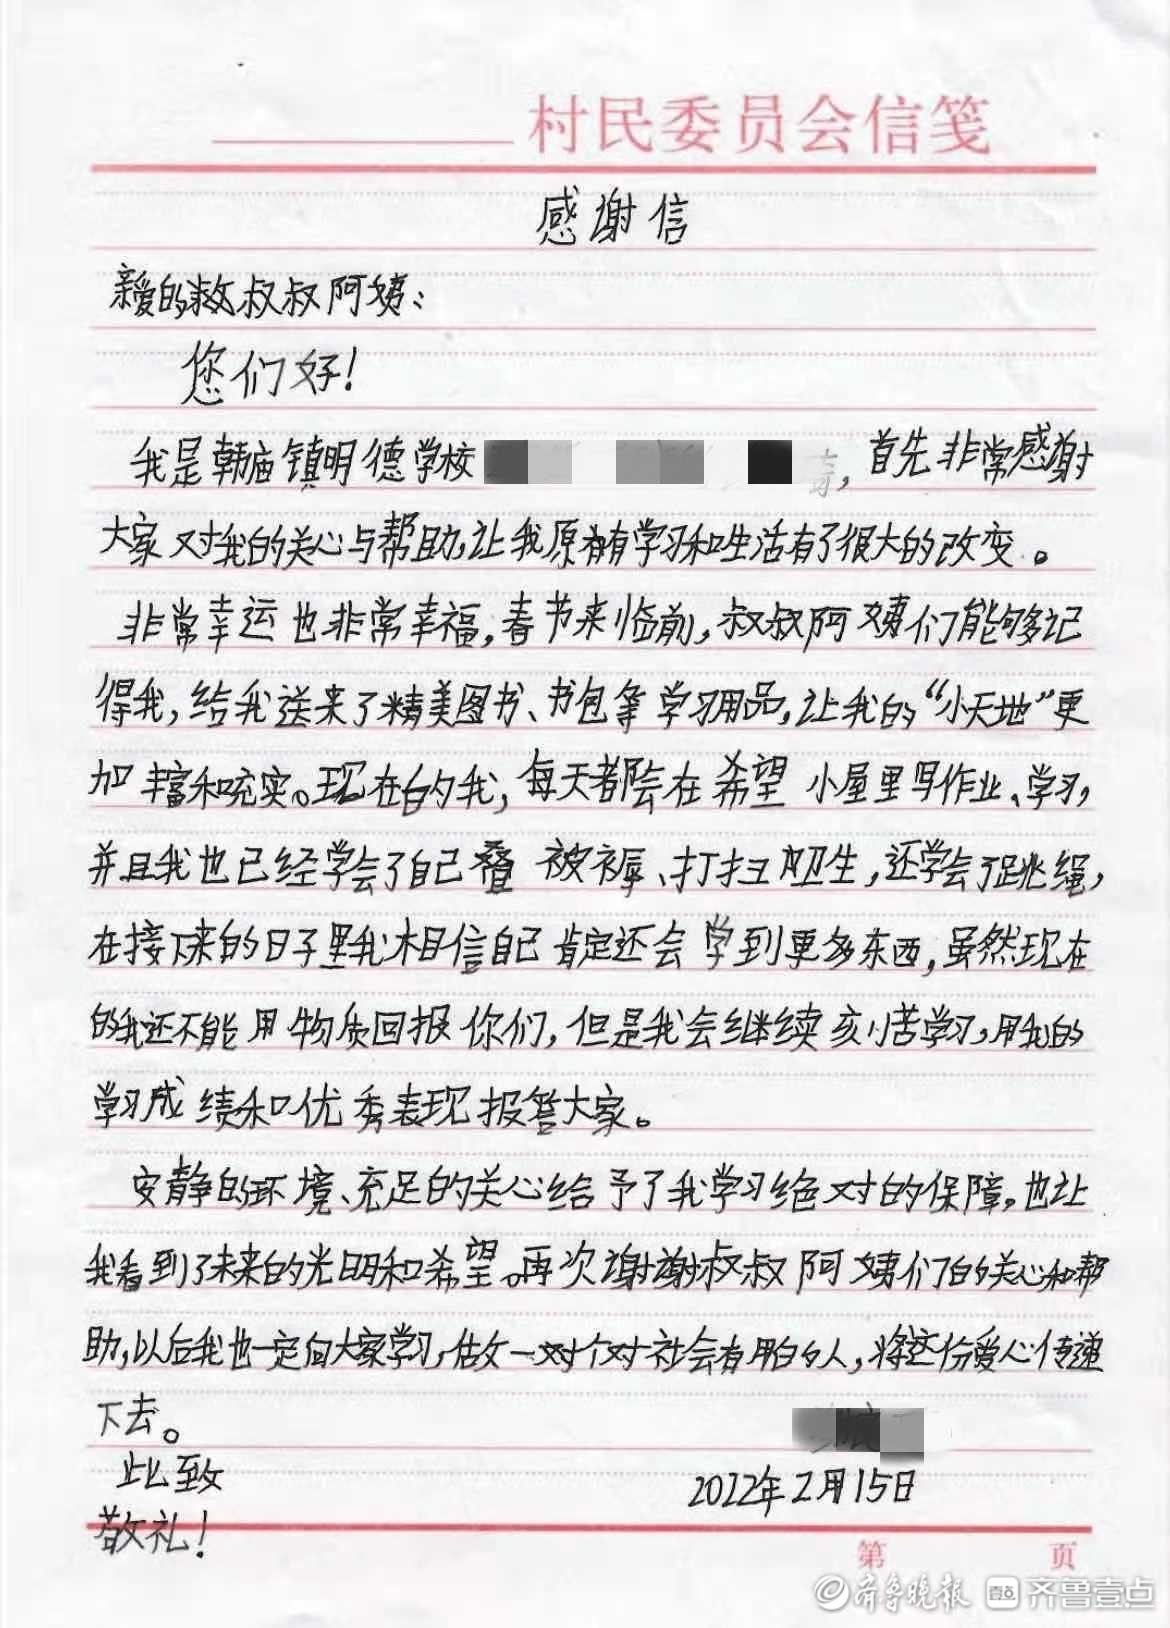 村民委员会信笺
感谢信
亲爱的叔叔阿姨：
您们好！
我是韩庙镇明德学校，首先非常感谢
大家对我的关心与帮助，让我原有学习和生活有了很大的改变。
非常幸运也非常幸福，春节来临前，叔叔阿姨们能够记
得我，给我送来了精美图书、书包等学习用品，让我的“小天地”更
加丰富和充实。现在的我，每天都会在希望小屋里写作业、学习，
并且我也已经学会了自己叠被褥、打扫卫生，还学会了跳绳，
在接下来的日子里我相信自己肯定还会学到更多东西，虽然现在
的我还不能用物质回报你们，但是我会继续刻苦学习，用我的
学习成绩和优秀表现报答大家。
安静的环境、充足的关心给予了我学习绝对的保障。也让
我看到了未来的光明和希望。再次谢谢叔叔阿姨们的关心和帮
助，以后我也一定向大家学习，做一对个对社会有用的人，将这份爱心传递
下去。
此致
2022年2月15日
敬礼！
第 页
齐鲁晚报 壹点 齐鲁壹点